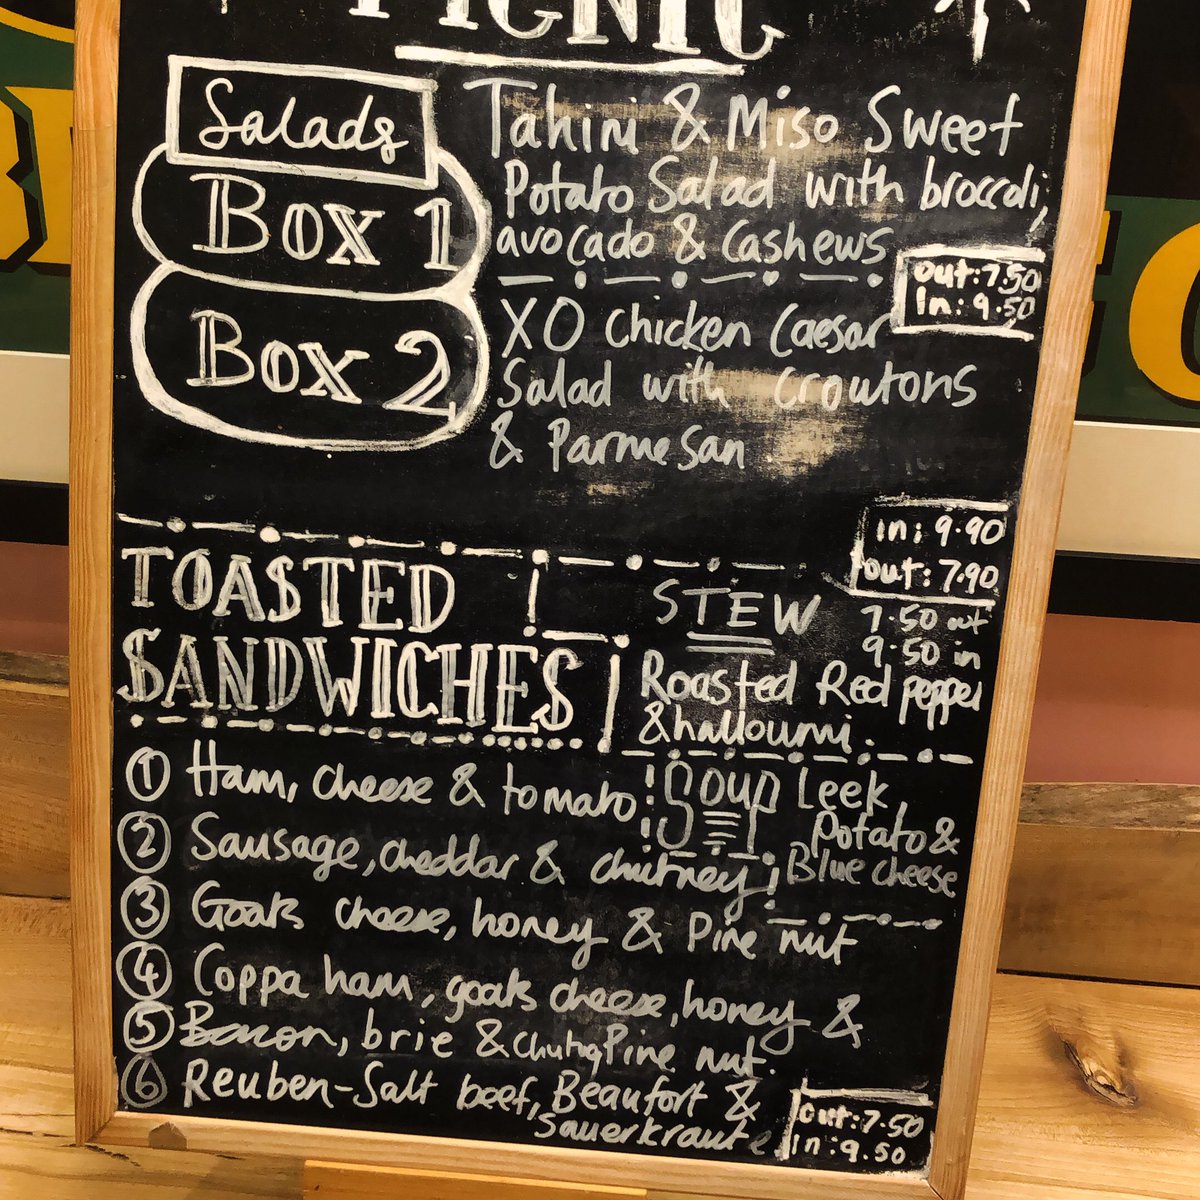 PICNIC
Salads
Box 1
Tahini & Miso Sweet
Potato Salad with broccoli,
avocado & Cashews
out: 7.50
in: 9.50
Box 2
XO Chicken Caesar
Salad with croutons
& Parmesan
in: 9.90
out: 7.90
TOASTED
SANDWICHES
STEW
7.50 out
9.50 in
Roasted Red pepper
& halloumi.
Soup Leek,
Potato &
Blue cheese
1 Ham, cheese & tomato
2 Sausage, cheddar & chutney
3 Goats cheese, honey & Pine nut
4 Coppa ham, goats cheese, honey &
Pine nut.
5 Bacon, brie & chutng
6 Reuben-Salt beef, Beaufort &
Sauerkraute
out: 7.50
in: 9.50